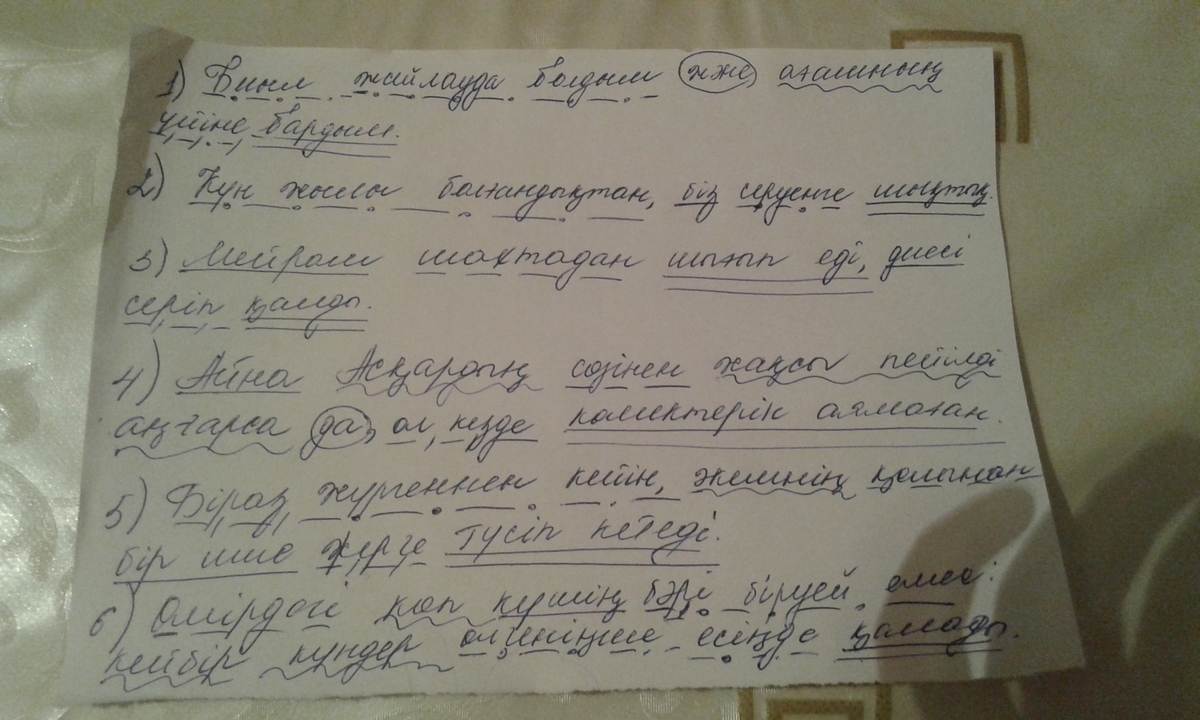 1) Биыл жайлауда болдым және атамның
үйіне бардым.
2) Күн жылы болғандықтан, біз серуенге шықтық.
3) Мейрам шахтадан шығып еді, демі
серіп қалды.
4) Айна Асқардың сөзінен жақсы пейілді
аңғарса да, ол кезде көмектерін аямаған.
5) Біраз жүргеннен кейін, әкемнің қолынан
бір нше жерге түсіп кетеді.
6) Өмірдегі көп күннің бәрі бірдей емес:
кейбір күндер өлгеніңше есіңде қалады.